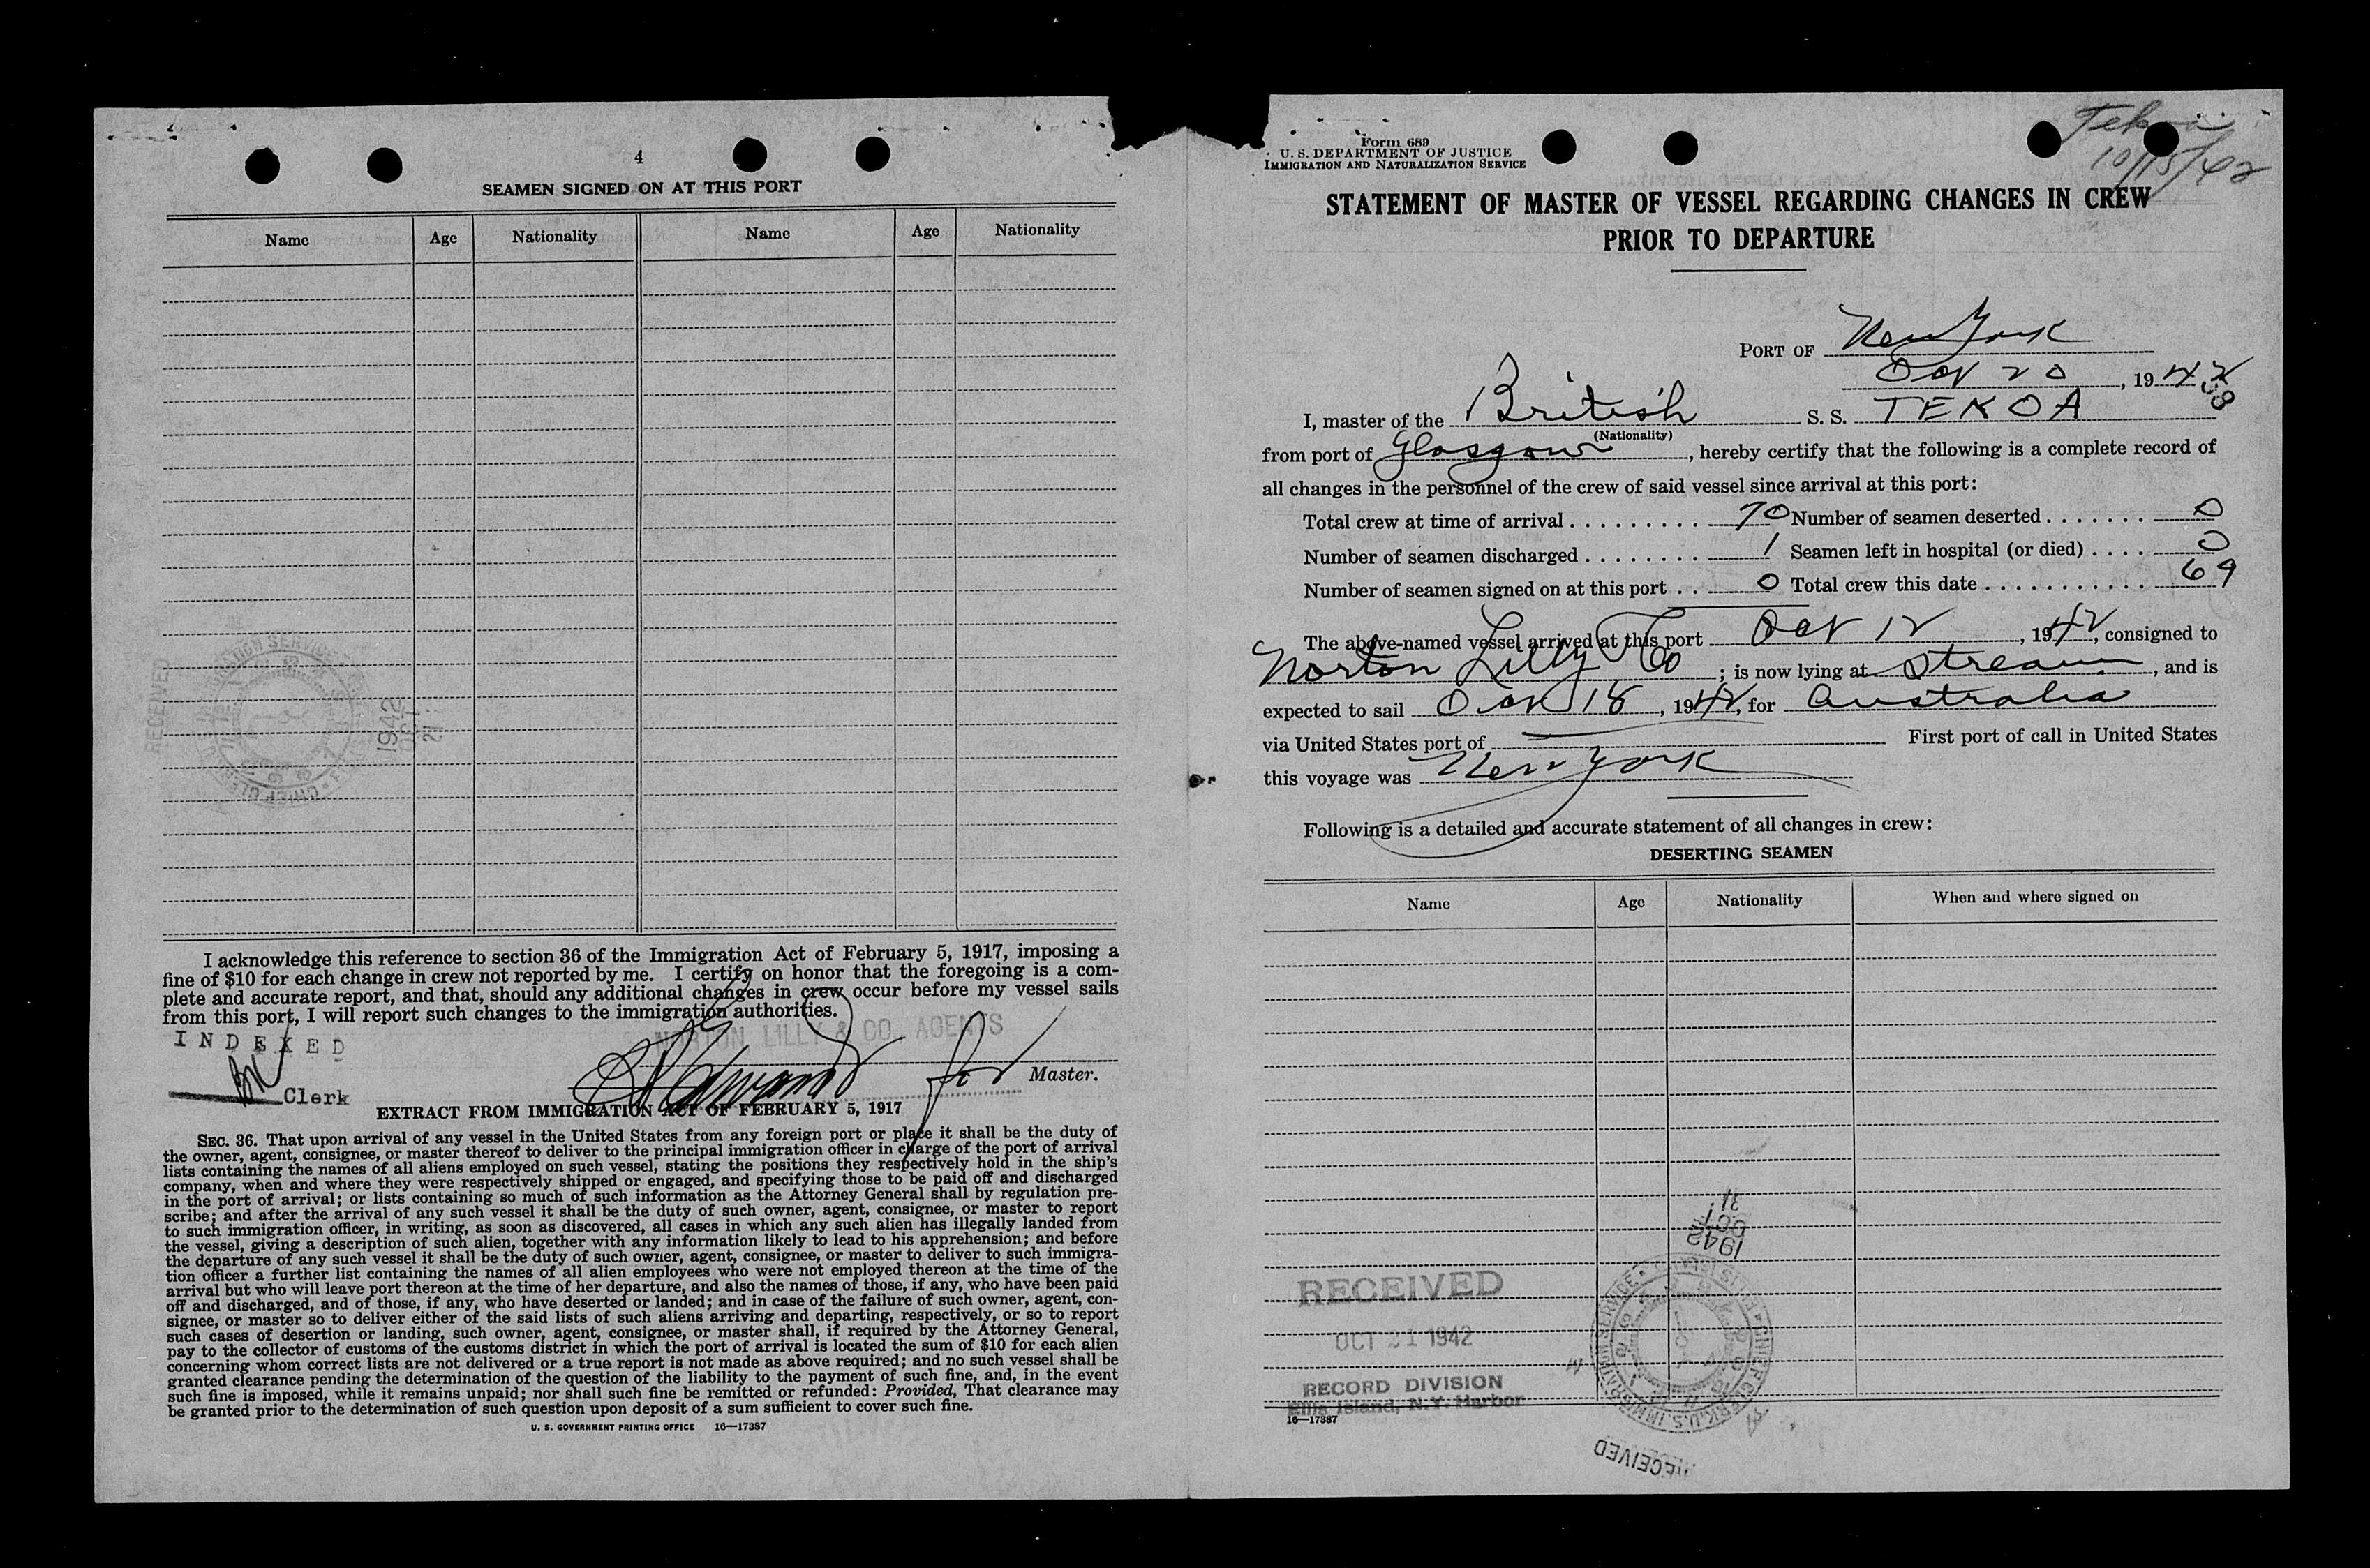 4
SEAMEN SIGNED ON AT THIS PORT
Name Age Nationality Name Age Nationality
I acknowledge this reference to section 36 of the Immigration Act of February 5, 1917, imposing a
fine of $10 for each change in crew not reported by me. I certify on honor that the foregoing is a com-
plete and accurate report, and that, should any additional changes in crew occur before my vessel sails
from this port, I will report such changes to the immigration authorities.
INDEXED
NORTON LILLY & CO. AGENTS
for Master.
Clerk
EXTRACT FROM IMMIGRATION ACT OF FEBRUARY 5, 1917
SEC. 36. That upon arrival of any vessel in the United States from any foreign port or place it shall be the duty of
the owner, agent, consignee, or master thereof to deliver to the principal immigration officer in charge of the port of arrival
lists containing the names of all aliens employed on such vessel, stating the positions they respectively hold in the ship's
company, when and where they were respectively shipped or engaged, and specifying those to be paid off and discharged
in the port of arrival; or lists containing so much of such information as the Attorney General shall by regulation pre-
scribe; and after the arrival of any such vessel it shall be the duty of such owner, agent, consignee, or master to report
to such immigration officer, in writing, as soon as discovered, all cases in which any such alien has illegally landed from
the vessel, giving a description of such alien, together with any information likely to lead to his apprehension; and before
the departure of any such vessel it shall be the duty of such owner, agent, consignee, or master to deliver to such immigra-
tion officer a further list containing the names of all alien employees who were not employed thereon at the time of the
arrival but who will leave port thereon at the time of her departure, and also the names of those, if any, who have been paid
off and discharged, and of those, if any, who have deserted or landed; and in case of the failure of such owner, agent, con-
signee, or master so to deliver either of the said lists of such aliens arriving and departing, respectively, or so to report
such cases of desertion or landing, such owner, agent, consignee, or master shall, if required by the Attorney General,
pay to the collector of customs of the customs district in which the port of arrival is located the sum of $10 for each alien
concerning whom correct lists are not delivered or a true report is not made as above required; and no such vessel shall be
granted clearance pending the determination of the question of the liability to the payment of such fine, and, in the event
such fine is imposed, while it remains unpaid; nor shall such fine be remitted or refunded: Provided, That clearance may
be granted prior to the determination of such question upon deposit of a sum sufficient to cover such fine.
U. S. GOVERNMENT PRINTING OFFICE 16—17387
RECEIVED
1942 OCT 21
Form 689
U. S. DEPARTMENT OF JUSTICE
IMMIGRATION AND NATURALIZATION SERVICE
Tekoa
10/15/42
STATEMENT OF MASTER OF VESSEL REGARDING CHANGES IN CREW
PRIOR TO DEPARTURE
PORT OF New York
Oct 20, 1942
I, master of the British S. S. TEKOA
(Nationality)
from port of Glasgow, hereby certify that the following is a complete record of
all changes in the personnel of the crew of said vessel since arrival at this port:
Total crew at time of arrival . . . . . . . . . 70 Number of seamen deserted . . . . . . . 0
Number of seamen discharged . . . . . . . . 1 Seamen left in hospital (or died) . . . . 0
Number of seamen signed on at this port . . 0 Total crew this date . . . . . . . . . . . . 69
The above-named vessel arrived at this port Oct 12, 1942, consigned to
Norton Lilly & Co; is now lying at Stream, and is
expected to sail Oct 18, 1942, for Australia
via United States port of — First port of call in United States
this voyage was New York
Following is a detailed and accurate statement of all changes in crew:
DESERTING SEAMEN
Name Age Nationality When and where signed on
1942 OCT
RECEIVED
OCT 21 1942
RECORD DIVISION
Ellis Island, N.Y. Harbor
16—17387
RECEIVED